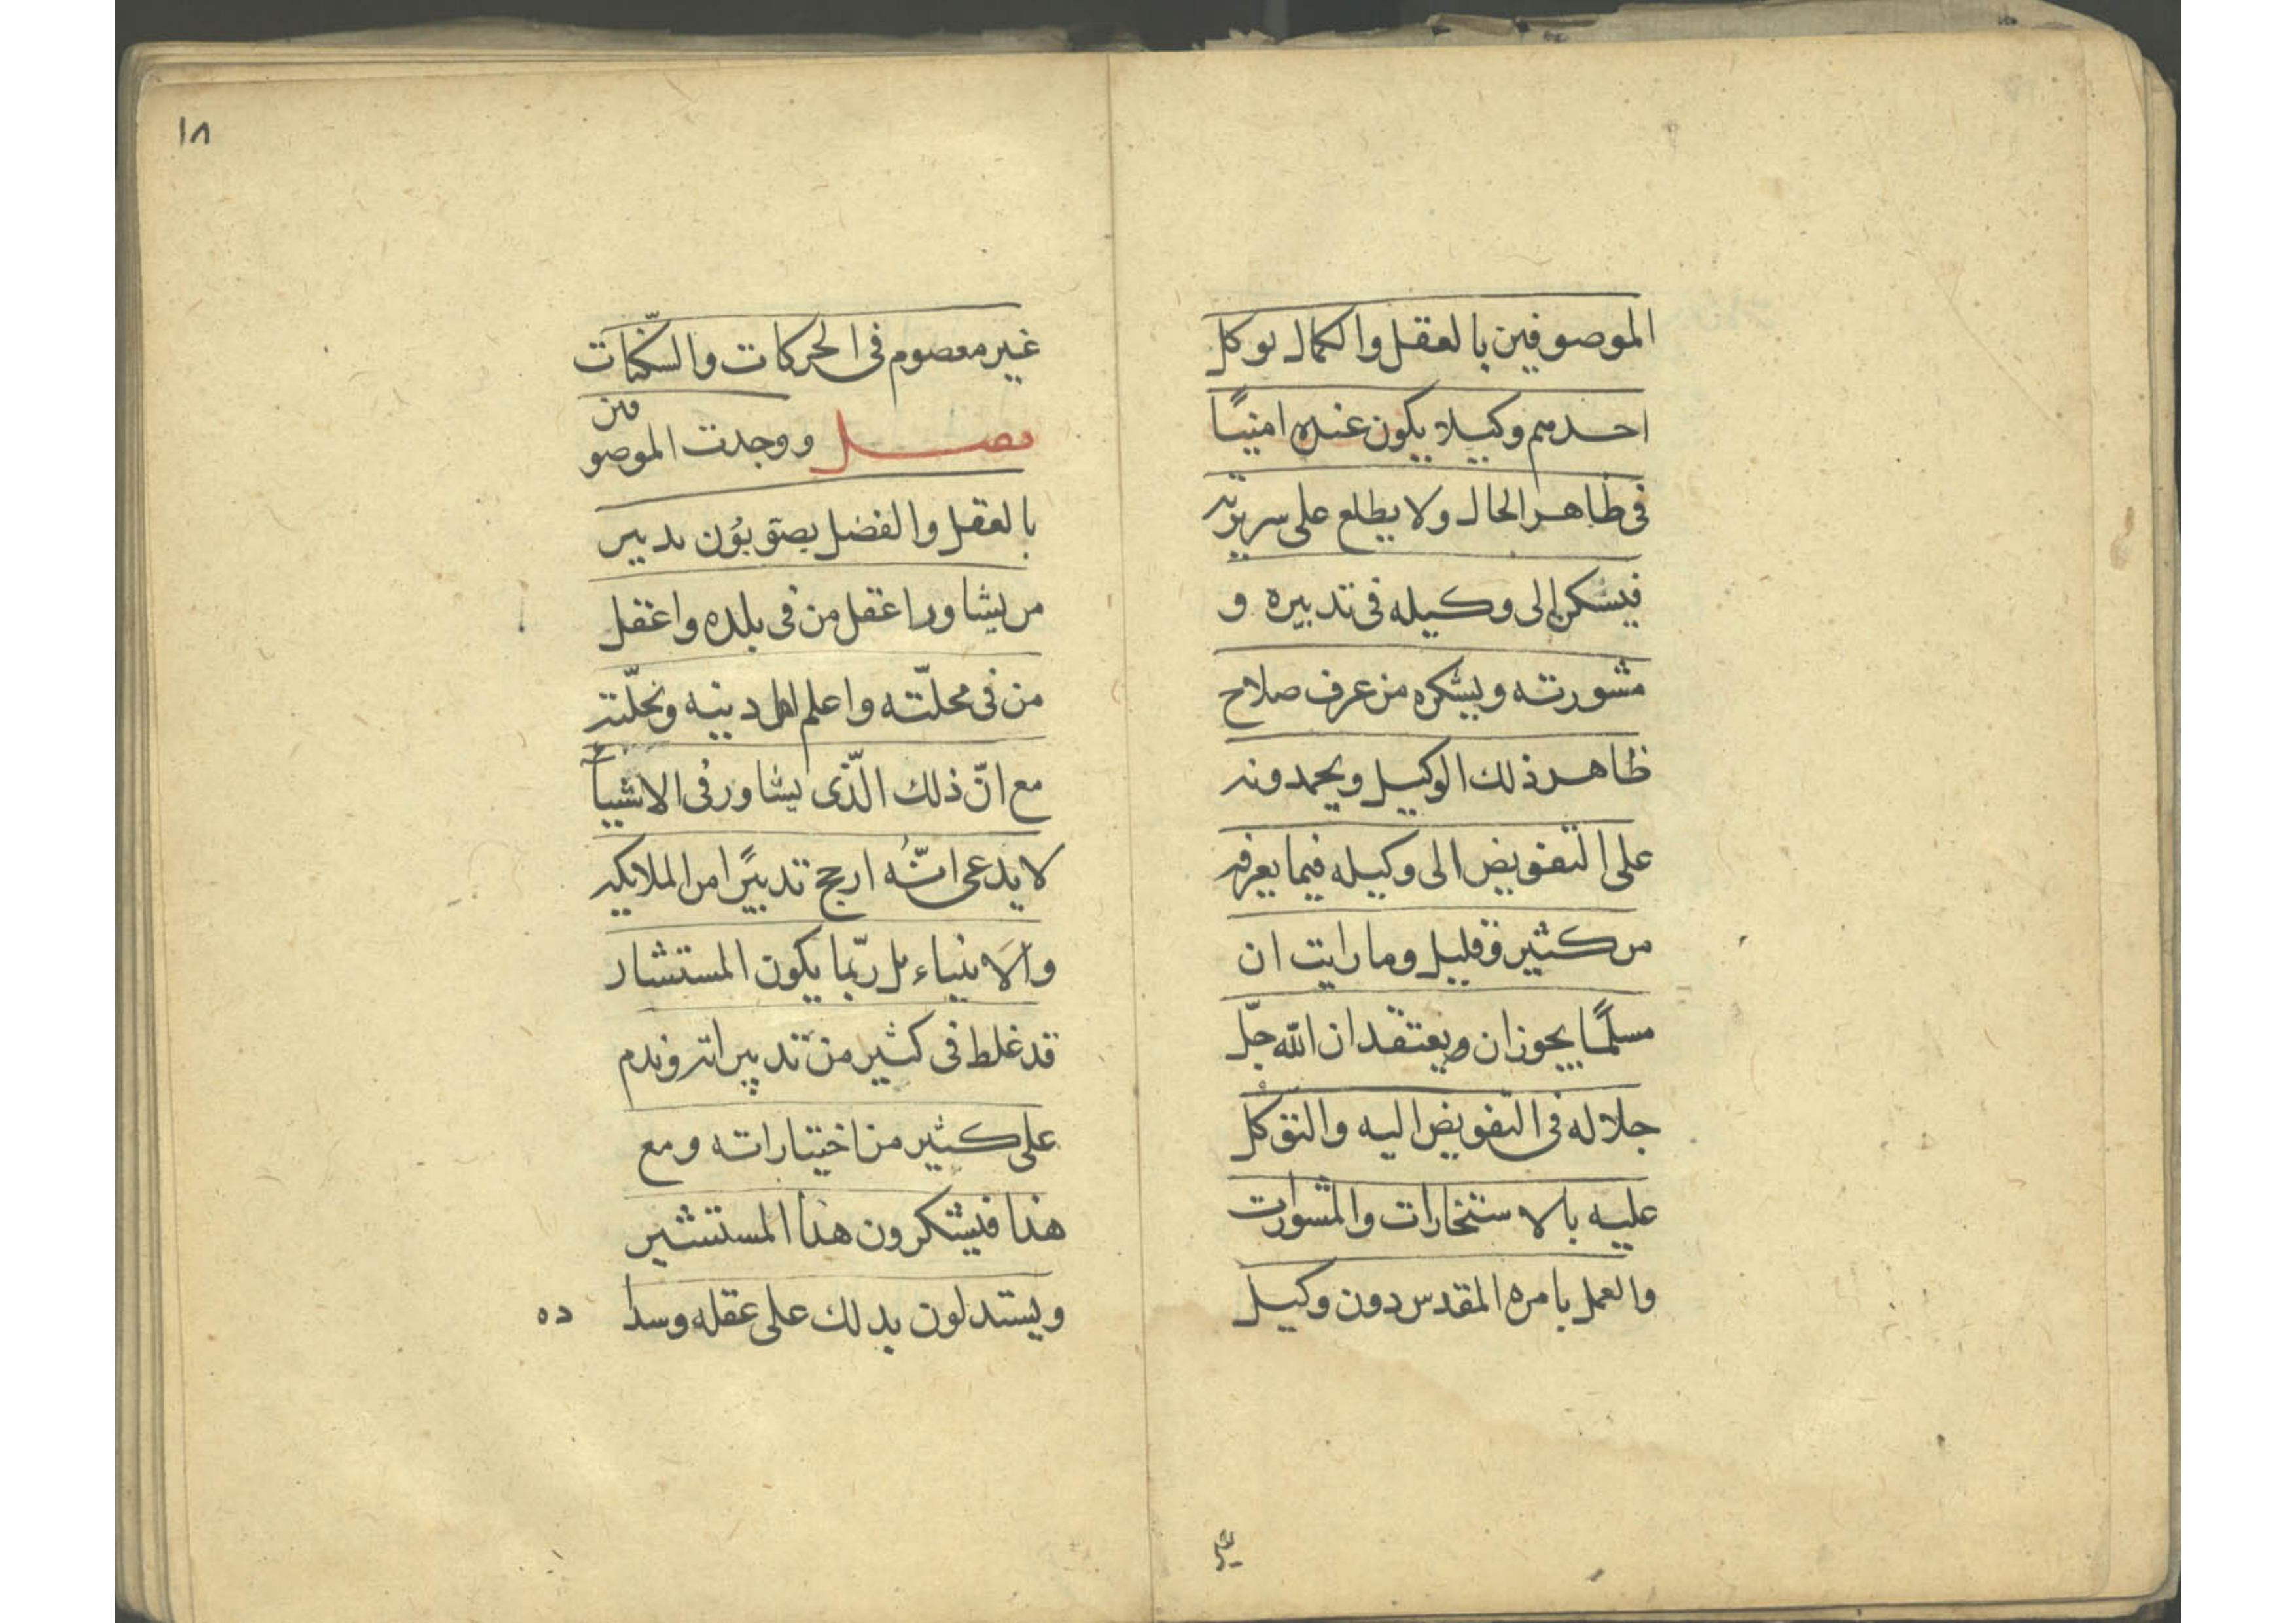 الموصوفين بالعقل والكمال يوكل
احدهم وكيلا يكون عنده امينًا
فى ظاهر الحال ولا يطلع على سريرته
فيسكن الى وكيله فى تدبيره و
مشورته ويشكره من عرف صلاح
ظاهر ذلك الوكيل ويحمدونه
على التفويض الى وكيله فيما يعرفه
من كثير وقليل وما رايت ان
مسلمًا يجوز ان يعتقد ان الله جلّ
جلاله فى التفويض اليه والتوكل
عليه بالاستخارات والمشورات
والعمل بامره المقدس دون وكيل
غير
١٨
غير معصوم فى الحركات والسكّنات
فصل ووجدت الموصوفين
بالعقل والفضل يصوّبُون تدبير
من يشاور اعقل من فى بلده واعقل
من فى محلّته واعلم اهل دينه ونحلّته
مع انّ ذلك الّذى يشاور فى الاشياء
لا يدعى انّه ارجح تدبيرًا من الملائكة
والانبياء بل ربّما يكون المستشار
قد غلط فى كثير من تدبيراته وندم
على كثير من اختياراته ومع
هذا فيشكرون هذا المستشير
ويستدلون بذلك على عقله وسدا
ده